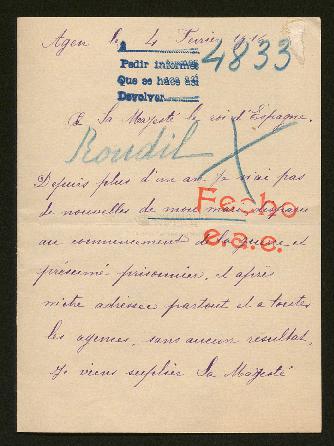 Agen le 4 Février 1916
4833
Pedir informes
Que se hace así
Devolver
A Sa Majesté le roi d'Espagne.
Roudil
Depuis plus d'un an je n'ai pas
de nouvelles de mon mari disparu
Fecho
au commencement de la guerre et
e.a.e.
présumé prisonnier, et après
m'être adressée partout et a toutes
les agences, sans aucun resultat,
Je viens supplier Sa Majesté